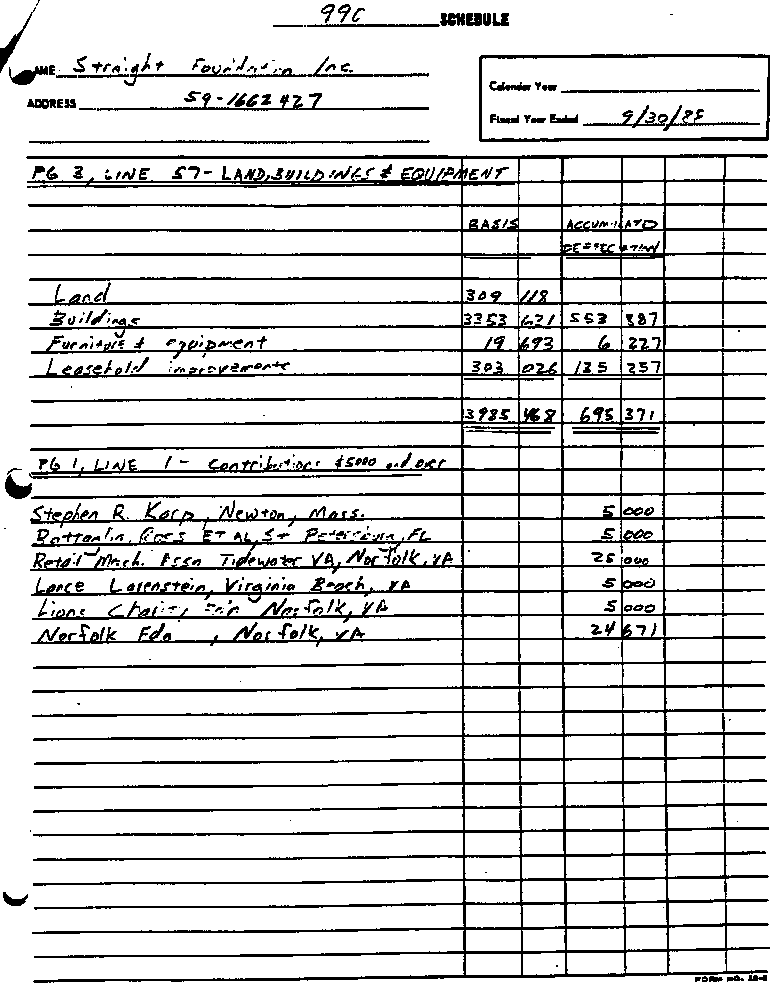 990 SCHEDULE
NAME Straight Foundation Inc.
ADDRESS 59-1662427
Calendar Year
Fiscal Year Ended 9/30/88
PG 3, LINE 57- LAND, BUILDINGS & EQUIPMENT
BASIS ACCUMULATED
DEPRECIATION
Land 309 118
Buildings 3353 631 553 887
Furniture & equipment 19 693 6 227
Leasehold improvements 303 026 135 257
3985 468 695 371
PG 1, LINE 1- Contributions $5000 and over
Stephen R. Karp, Newton, Mass. 5 000
ET AL, St Petersburg, FL 5 000
Retail Merch. Assn Tidewater VA, Norfolk, VA 25 000
Lance Lorenstein, Virginia Beach, VA 5 000
Lions Charity Norfolk, VA 5 000
Norfolk Fdn , Norfolk, VA 24 671
FORM NO.